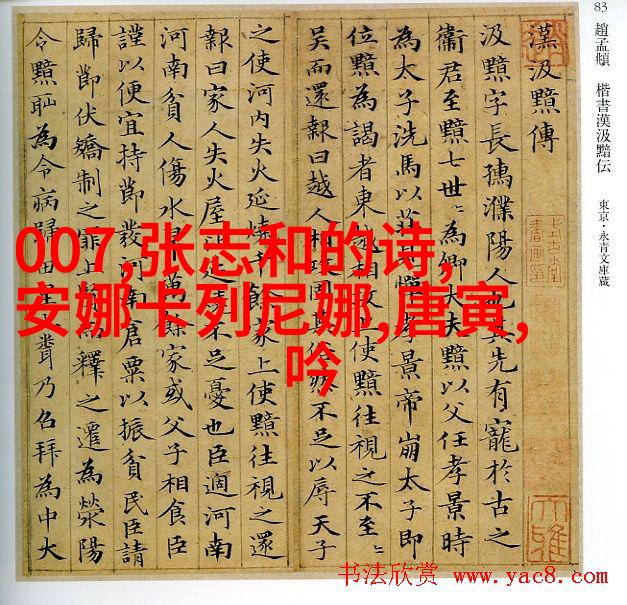 83 趙孟頫 楷書漢汲黯伝 東京・永青文庫蔵
漢汲黯傳
汲黯字長孺濮陽人也其先有寵於古之
衞君至黯七世〻為卿大夫黯以父任孝景時
為太子洗馬以莊見憚孝景帝崩太子即
位黯為謁者東越相攻上使黯往視之不至〻
吳而還報曰越人相攻固其俗然不足以辱天子
之使河內失火延燒千餘家上使黯往視之還
報曰家人失火屋比延燒不足憂也臣適河南
河南貧人傷水旱萬餘家或父子相食臣
謹以便宜持節發河南倉粟以振貧民臣請
歸節伏矯制之罪上賢而釋之遷為滎陽
令黯恥為令病歸田里乃召拜為中大
007,张志和的诗,
安娜卡列尼娜,唐寅,
吟
书法欣赏 www.yac8.com